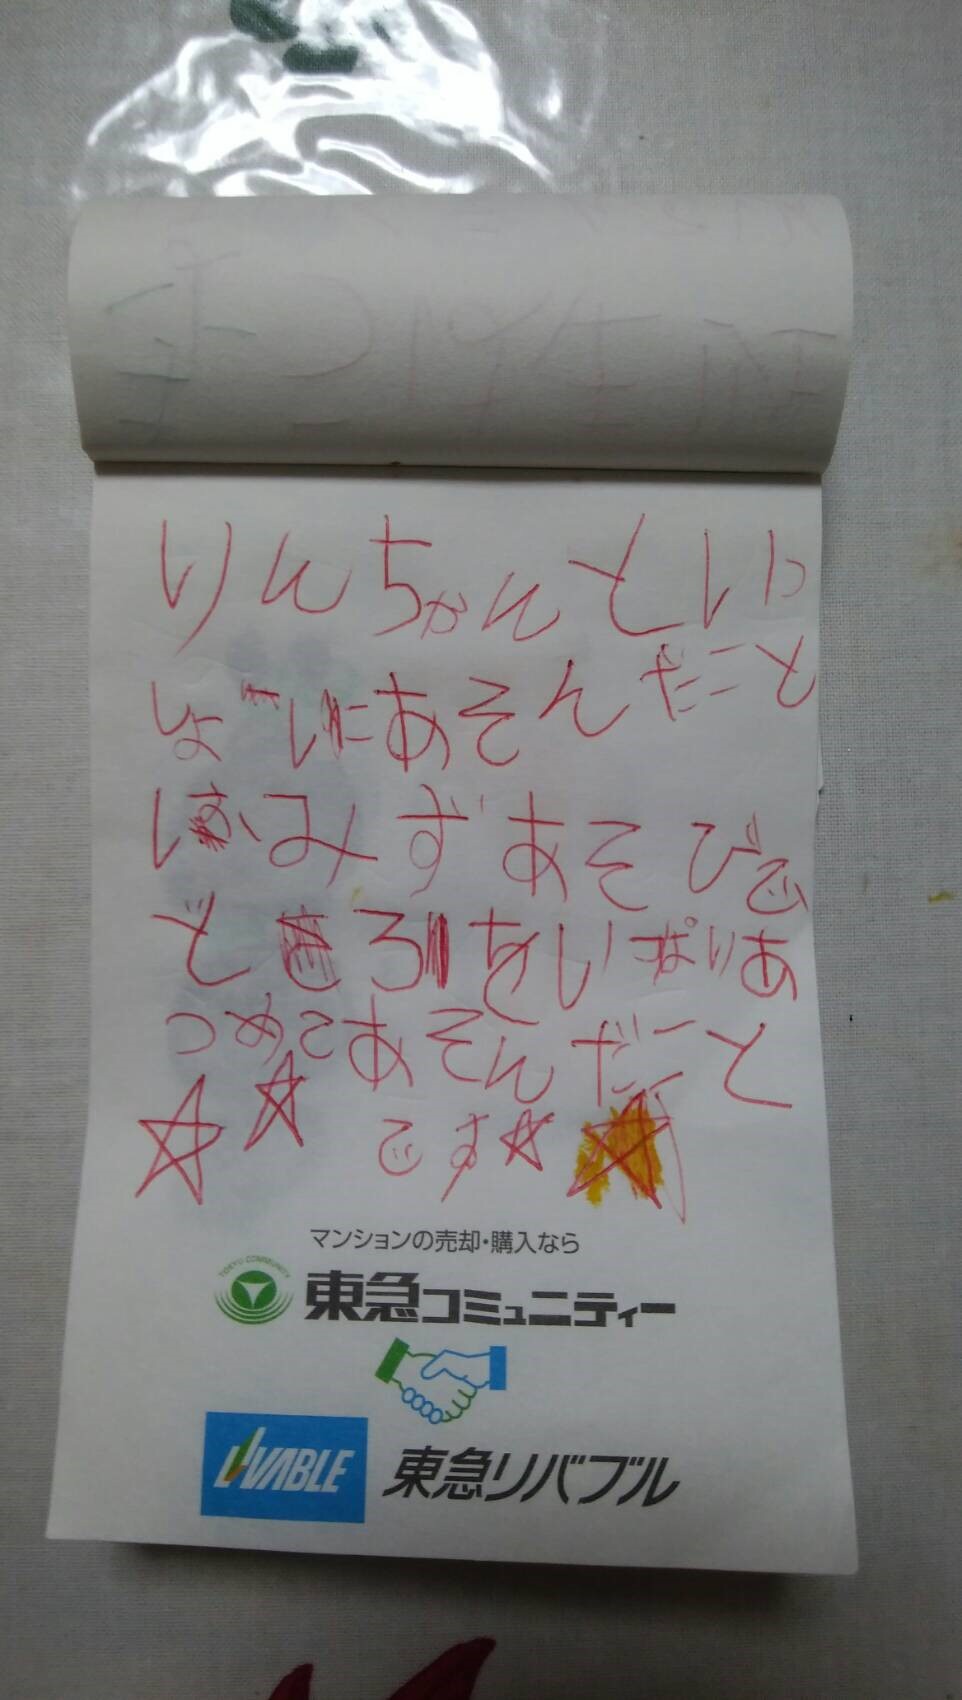 りんちゃんといっ
しょにあそんだこと
はみずあそびで
どろをいぱりあ
つめてあそんだこと
です
マンションの売却・購入なら
TOKYU COMMUNITY
東急コミュニティー
LIVABLE
東急リバブル